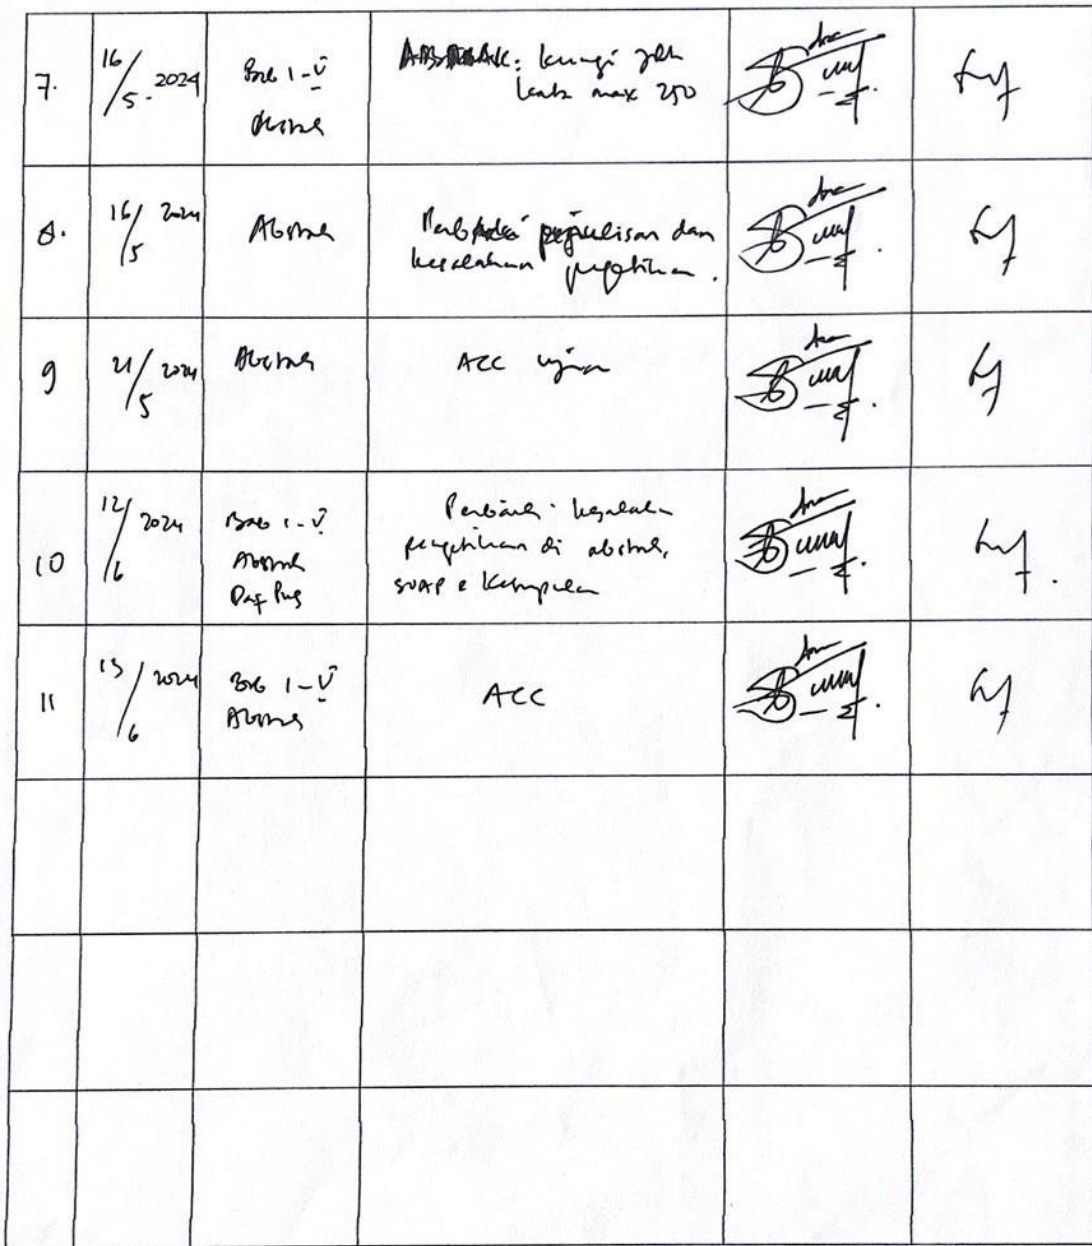 7.
16/5.2024
Bab I-V
Abstrak
ABSTRAK: kurangi jlh
kata max 250
8.
16/5 2024
Abstrak
Perbaiki penulisan dan
kesalahan pengetikan.
9
21/5 2024
Abstrak
ACC ujian
10
12/6 2024
Bab I-V
Abstrak
Daf Pus
Perbaiki kesalahan
pengetikan di abstrak,
SOAP & Kesimpulan
11
13/6 2024
Bab I-V
Abstrak
ACC